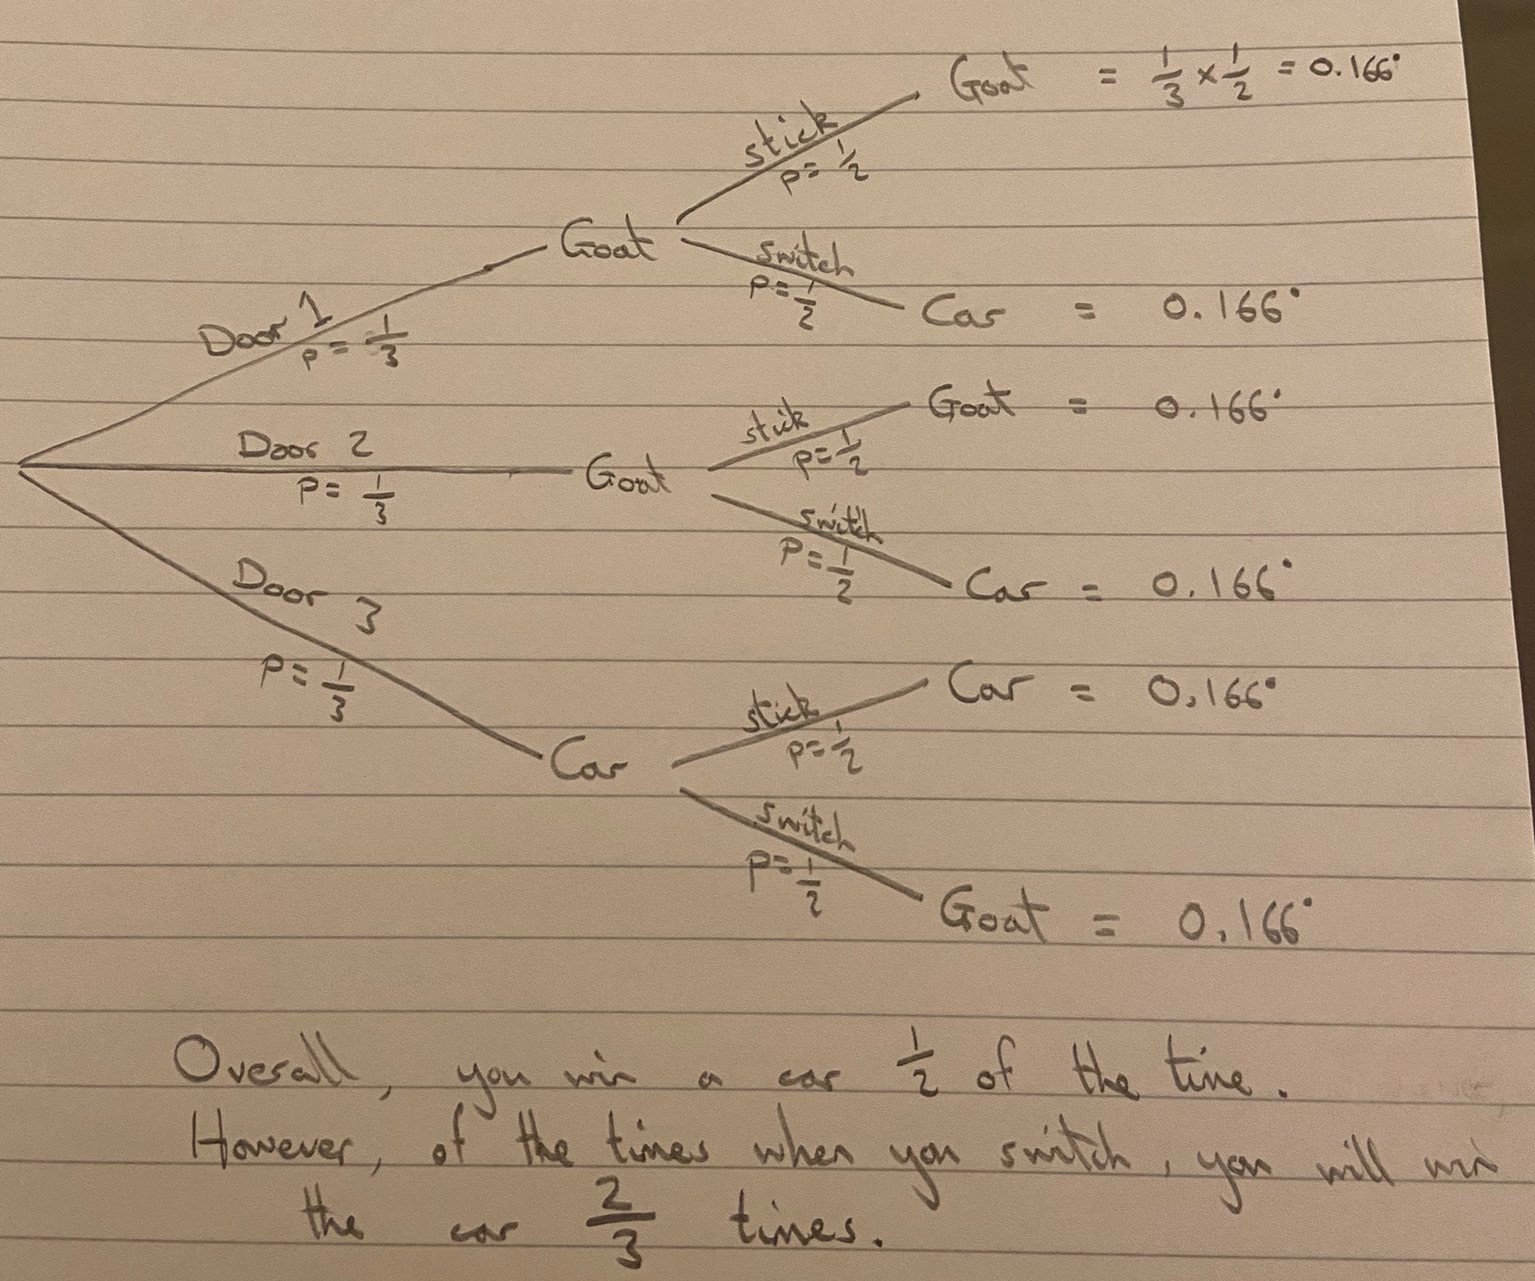 Goat = 1/3 × 1/2 = 0.166̇
stick
p = 1/2
Goat
switch
p = 1/2
Car = 0.166̇
Door 1
p = 1/3
stick
p = 1/2
Goat = 0.166̇
Door 2
p = 1/3
Goat
switch
p = 1/2
Car = 0.166̇
Door 3
p = 1/3
stick
p = 1/2
Car = 0.166̇
Car
switch
p = 1/2
Goat = 0.166̇
Overall, you win a car 1/2 of the time.
However, of the times when you switch, you will win
the car 2/3 times.